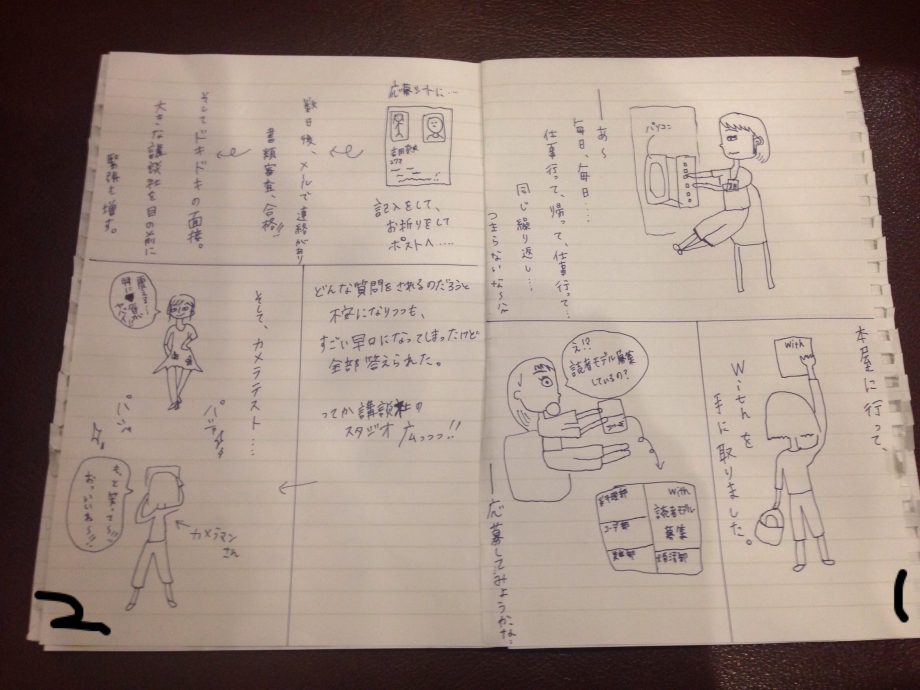 1
パソコン
――あ〜
毎日、毎日……
仕事行って、帰って、仕事行って…
同じ繰り返し…
つまらないな〜
本屋に行って、
Withを
手に取りました。
With
え!?
読者モデル募集
しているの?
With
読者モデル
募集
料理部
コーデ部
美容部
妊活部
――応募してみようかな。
2
応募シートに…
記入をして、
お祈りをして
ポストへ……
数日後、メルで連絡があり
書類審査、合格!!
そしてドキドキの面接。
大きな講談社を目の前に
緊張も増す。
どんな質問をされるのだろうと
不安になりつつも、
すごい早口になってしまったけど
全部答えられた。
ってか講談社の
スタジオ広っっっ!!
そして、カメラテスト…
パシャ
パシャ
もっと笑って〜!!
おっいいね〜!!
カメラマン
さん